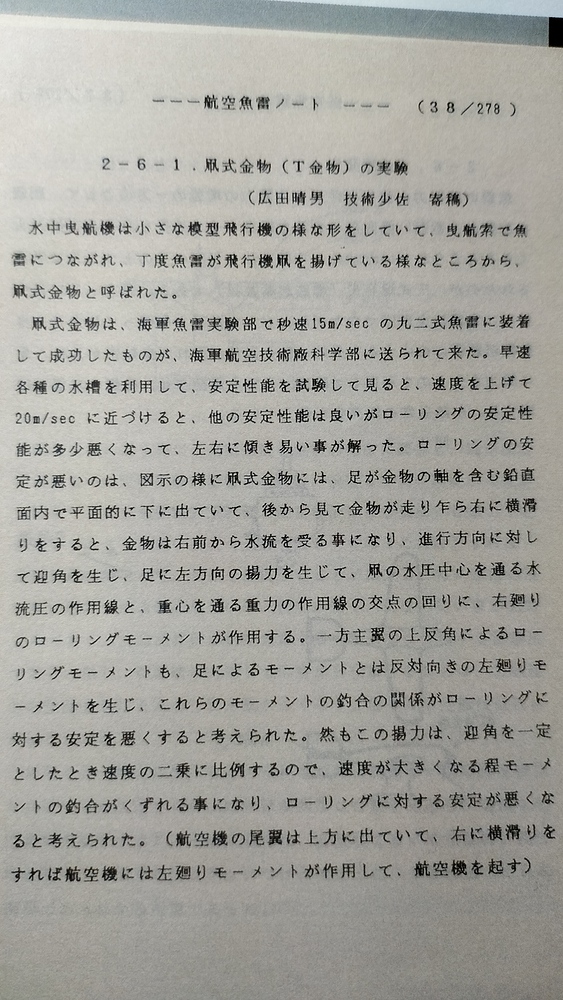 ---航空魚雷ノート --- (38/278)
2-6-1.凧式金物(T金物)の実験
(広田晴男 技術少佐 寄稿)
水中曳航機は小さな模型飛行機の様な形をしていて、曳航索で魚
雷につながれ、丁度魚雷が飛行機凧を揚げている様なところから、
凧式金物と呼ばれた。
凧式金物は、海軍魚雷実験部で秒速15m/sec の九二式魚雷に装着
して成功したものが、海軍航空技術廠科学部に送られて来た。早速
各種の水槽を利用して、安定性能を試験して見ると、速度を上げて
20m/sec に近づけると、他の安定性能は良いがローリングの安定性
能が多少悪くなって、左右に傾き易い事が解った。ローリングの安
定が悪いのは、図示の様に凧式金物には、足が金物の軸を含む鉛直
面内で平面的に下に出ていて、後から見て金物が走り乍ら右に横滑
りをすると、金物は右前から水流を受る事になり、進行方向に対し
て迎角を生じ、足に左方向の揚力を生じて、凧の水圧中心を通る水
流圧の作用線と、重心を通る重力の作用線の交点の回りに、右廻り
のローリングモーメントが作用する。一方主翼の上反角によるロー
リングモーメントも、足によるモーメントとは反対向きの左廻りモ
ーメントを生じ、これらのモーメントの釣合の関係がローリングに
対する安定を悪くすると考えられた。然もこの揚力は、迎角を一定
としたとき速度の二乗に比例するので、速度が大きくなる程モーメ
ントの釣合がくずれる事になり、ローリングに対する安定が悪くな
ると考えられた。(航空機の尾翼は上方に出ていて、右に横滑りを
すれば航空機には左廻りモーメントが作用して、航空機を起す)